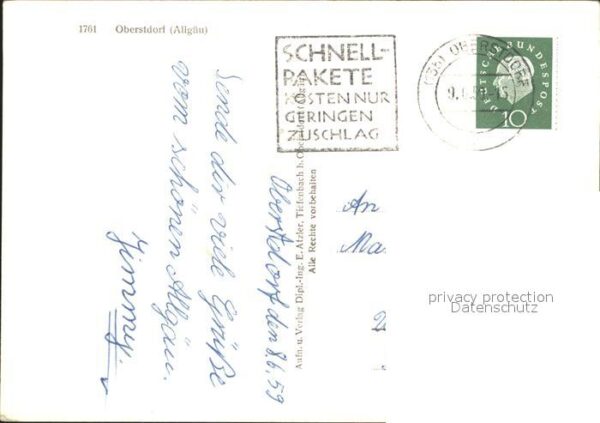 1761 Oberstdorf (Allgäu)
SCHNELL-
PAKETE
KOSTEN NUR
GERINGEN
ZUSCHLAG
(13b) OBERSTDORF
DEUTSCHE BUNDESPOST
10
Oberstdorf den 8.6.59
Sende dir viele Grüße
vom schönen Allgäu.
Jimmy
Aufn. u. Verlag Dipl.-Ing. E. Atzler, Tiefenbach b. Oberstdorf
Alle Rechte vorbehalten
An
Ma
privacy protection
Datenschutz